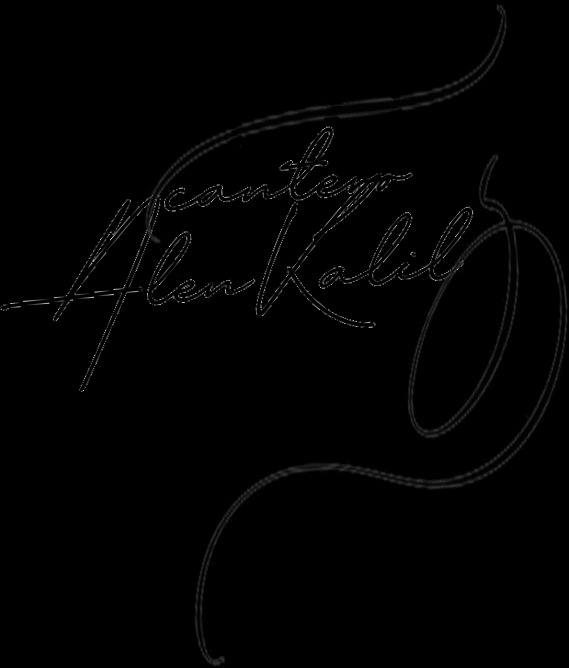 cantero
Alen Kalil